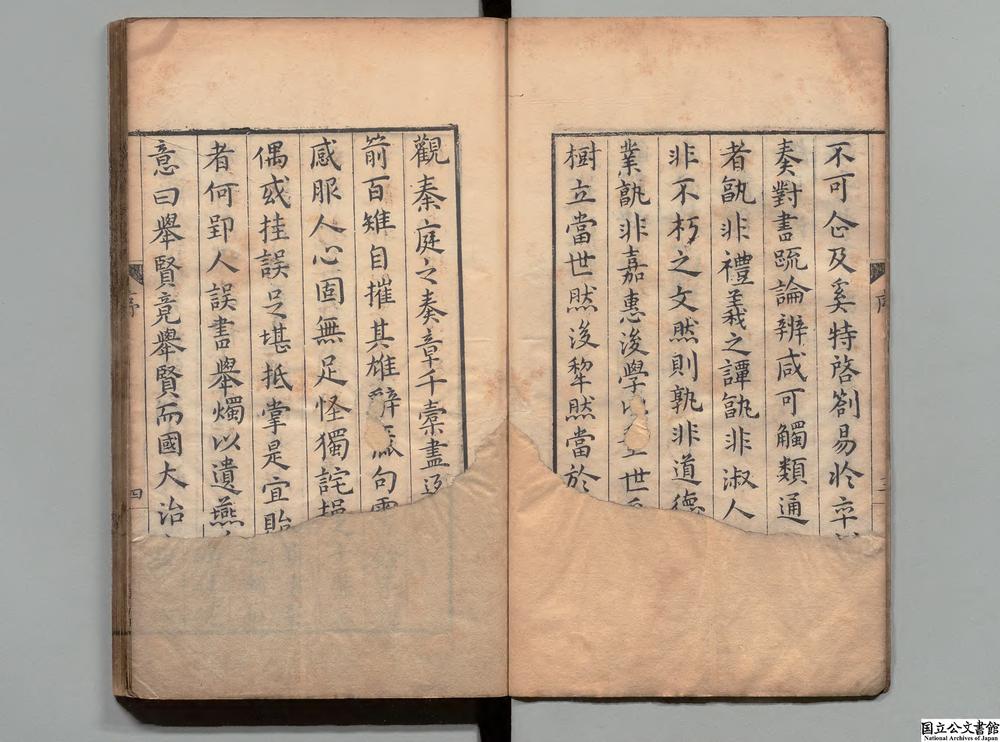 不可仑及奚特啓劄易於卒
奏對書䟽論辨咸可觸類通
者孰非禮義之譚孰非淑人
非不朽之文然則孰非道德
業孰非嘉惠後學 世
樹立當世然後犂然當於
序
觀秦庭之奏章千稾盡
箭百雉自摧其雄辭 句
感服人心固無足怪獨詫
偶或挂誤足堪抵掌是宜貽
者何郢人誤書舉燭以遺燕
意曰舉賢竟舉賢而國大治
序
四
国立公文書館
National Archives of Japan